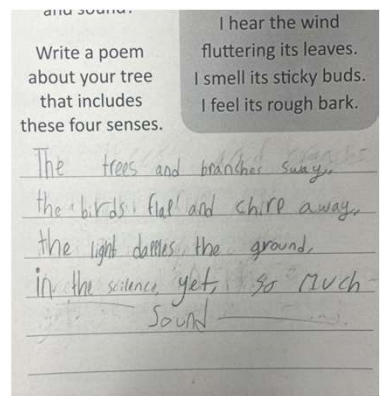 and sound?
Write a poem
about your tree
that includes
these four senses.
I hear the wind
fluttering its leaves.
I smell its sticky buds.
I feel its rough bark.
The trees and branches sway,
the birds flap and chirp away,
the light dapples the ground,
in the scilence, yet, so much
Sound